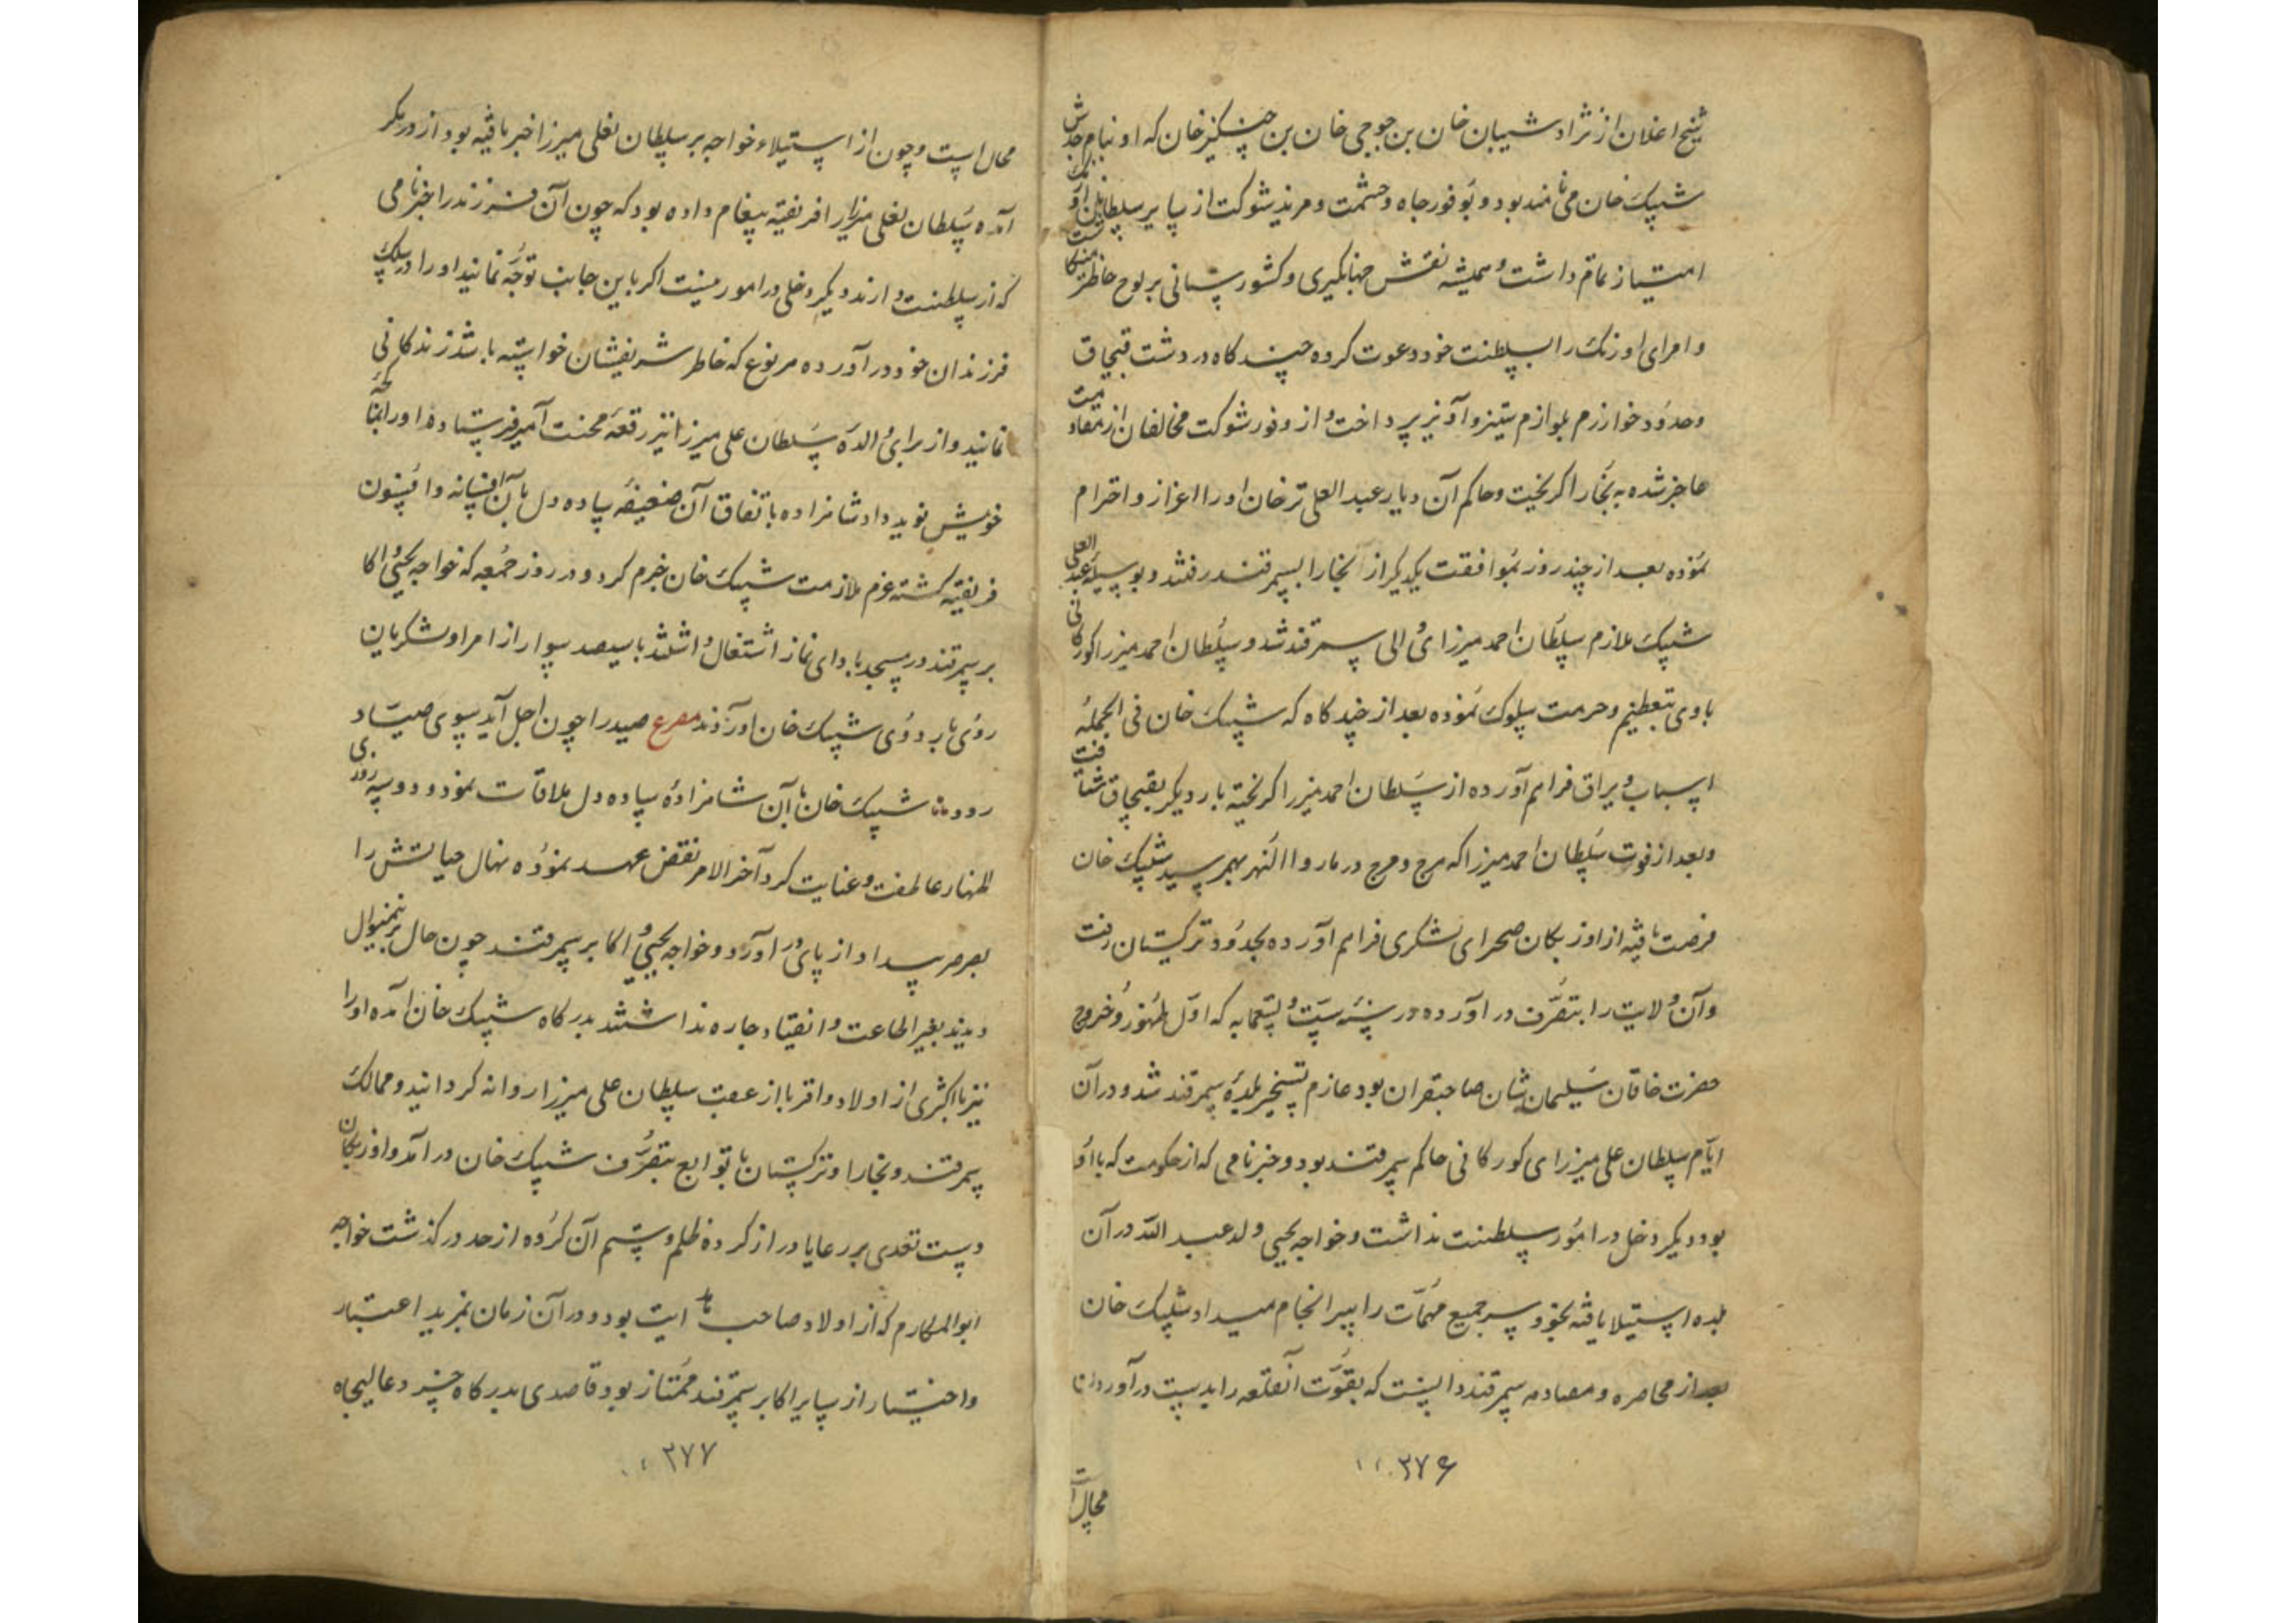 شیخ اغلان از نژاد شیبان خان بن جوجی خان بن چنکیز خان که او بنام جدش
شیبک خان می نامند بود و بوفور جاه و حشمت و مزید شوکت از سایر سلاطین اوزبک
امتیاز تمام داشت و همیشه نقش جهانکیری و کشورستانی بر لوح خاطر
و امرای اوزبک را بسلطنت خود دعوت کرده چند کاه در دشت قبچاق
و حدود خوارزم بلوازم ستیز و آویز پرداخت و از وفور شوکت مخالفان از مقاومت
عاجز شده به بخارا کریخت و حاکم آن دیار عبد العلی ترخان او را اعزاز و احترام
نموده بعد از چند روز بموافقت یکدیکر از بخارا بسمرقند رفتند و بوسیله عبد العلی
شیبک ملازم سلطان احمد میرزای والی سمرقند شد و سلطان احمد میرزا کورکانی
با وی بتعظیم و حرمت سلوک نموده بعد از چند کاه که شیبک خان فی الجمله
اسباب و یراق فراهم آورده از سلطان احمد میرزا کریخته بار دیکر بقبچاق شتافت
و بعد از فوت سلطان احمد میرزا که هرج و مرج در ماوراالنهر بهم رسید شیبک خان
فرصت یافته از اوزبکان صحرای لشکری فراهم آورده بحدود ترکستان رفت
و آن ولایت را بتصرف در آورده در سنه ست و تسعمایه که اول ظهور و خروج
حضرت خاقان سلیمان شان صاحبقران بود عازم تسخیر بلده سمرقند شد و در آن
ایام سلطان علی میرزای کورکانی حاکم سمرقند بود و جز نامی که از حکومت که با او
بود دیکر دخل در امور سلطنت نداشت و خواجه یحیی ولد عبد الله در آن
بلده استیلا یافته بخود سر جمیع مهمات را سرانجام میداد شیبک خان
بعد از محاصره و مصادمه سمرقند دانست که بقوت آنقلعه را بدست در آوردن
۳۷۶
محال است
محال است و چون از استیلاء خواجه بر سلطان نعلی میرزا خبر یافته بود از در مکر
آمده سلطان نعلی میرزا را فریفته پیغام داده بود که چون آن فرزند را بجز نامی
که از سلطنت دارند دیکر دخلی در امور نیست اکر باین جانب توجه نمایند او را در سلک
فرزندان خود در آورده هر نوع که خاطر شریفشان خواسته باشد زندکانی
نمایند و از برای والده سلطان علی میرزا نیز رقعه محبت آمیز فرستاده او را
خویش نوید داد شاهزاده باتفاق آن ضعیفه ساده دل بآن افسانه و افسون
فریفته کشته عزم ملازمت شیبک خان جزم کرد و در روز جمعه که خواجه یحیی و اکا
بر سمرقند در مسجد بادای نماز اشتغال داشتند با سیصد سوار از امرا و لشکریان
روی باردوی شیبک خان آوردند مصرع صید را چون اجل آید سوی صیاد
رود شیبک خان بآن شاهزاده ساده دل ملاقات نمود و دو سه روزی
اظهار عاطفت و عنایت کرد آخر الامر نقض عهد نموده نهال حیاتش را
بصرصر بیداد از پای در آورد و خواجه یحیی و اکابر سمرقند چون حال بر نمنوال
دیدند بغیر اطاعت و انقیاد چاره نداشتند بدرکاه شیبک خان آمده او را
نیز با اکثری از اولاد و اقربا از عقب سلطان علی میرزا روانه کردانید و ممالک
سمرقند و بخارا و ترکستان با توابع بتصرف شیبک خان در آمد و اوزبکان
دست تعدی بر رعایا دراز کرده ظلم و ستم آن کروه از حد در کذشت خواجه
ابو المکارم که از اولاد صاحب هدایت بود و در آن زمان بمزید اعتبار
و اختیار از سایر اکابر سمرقند ممتاز بود قاصدی بدرکاه عالیجاه
۳۷۷